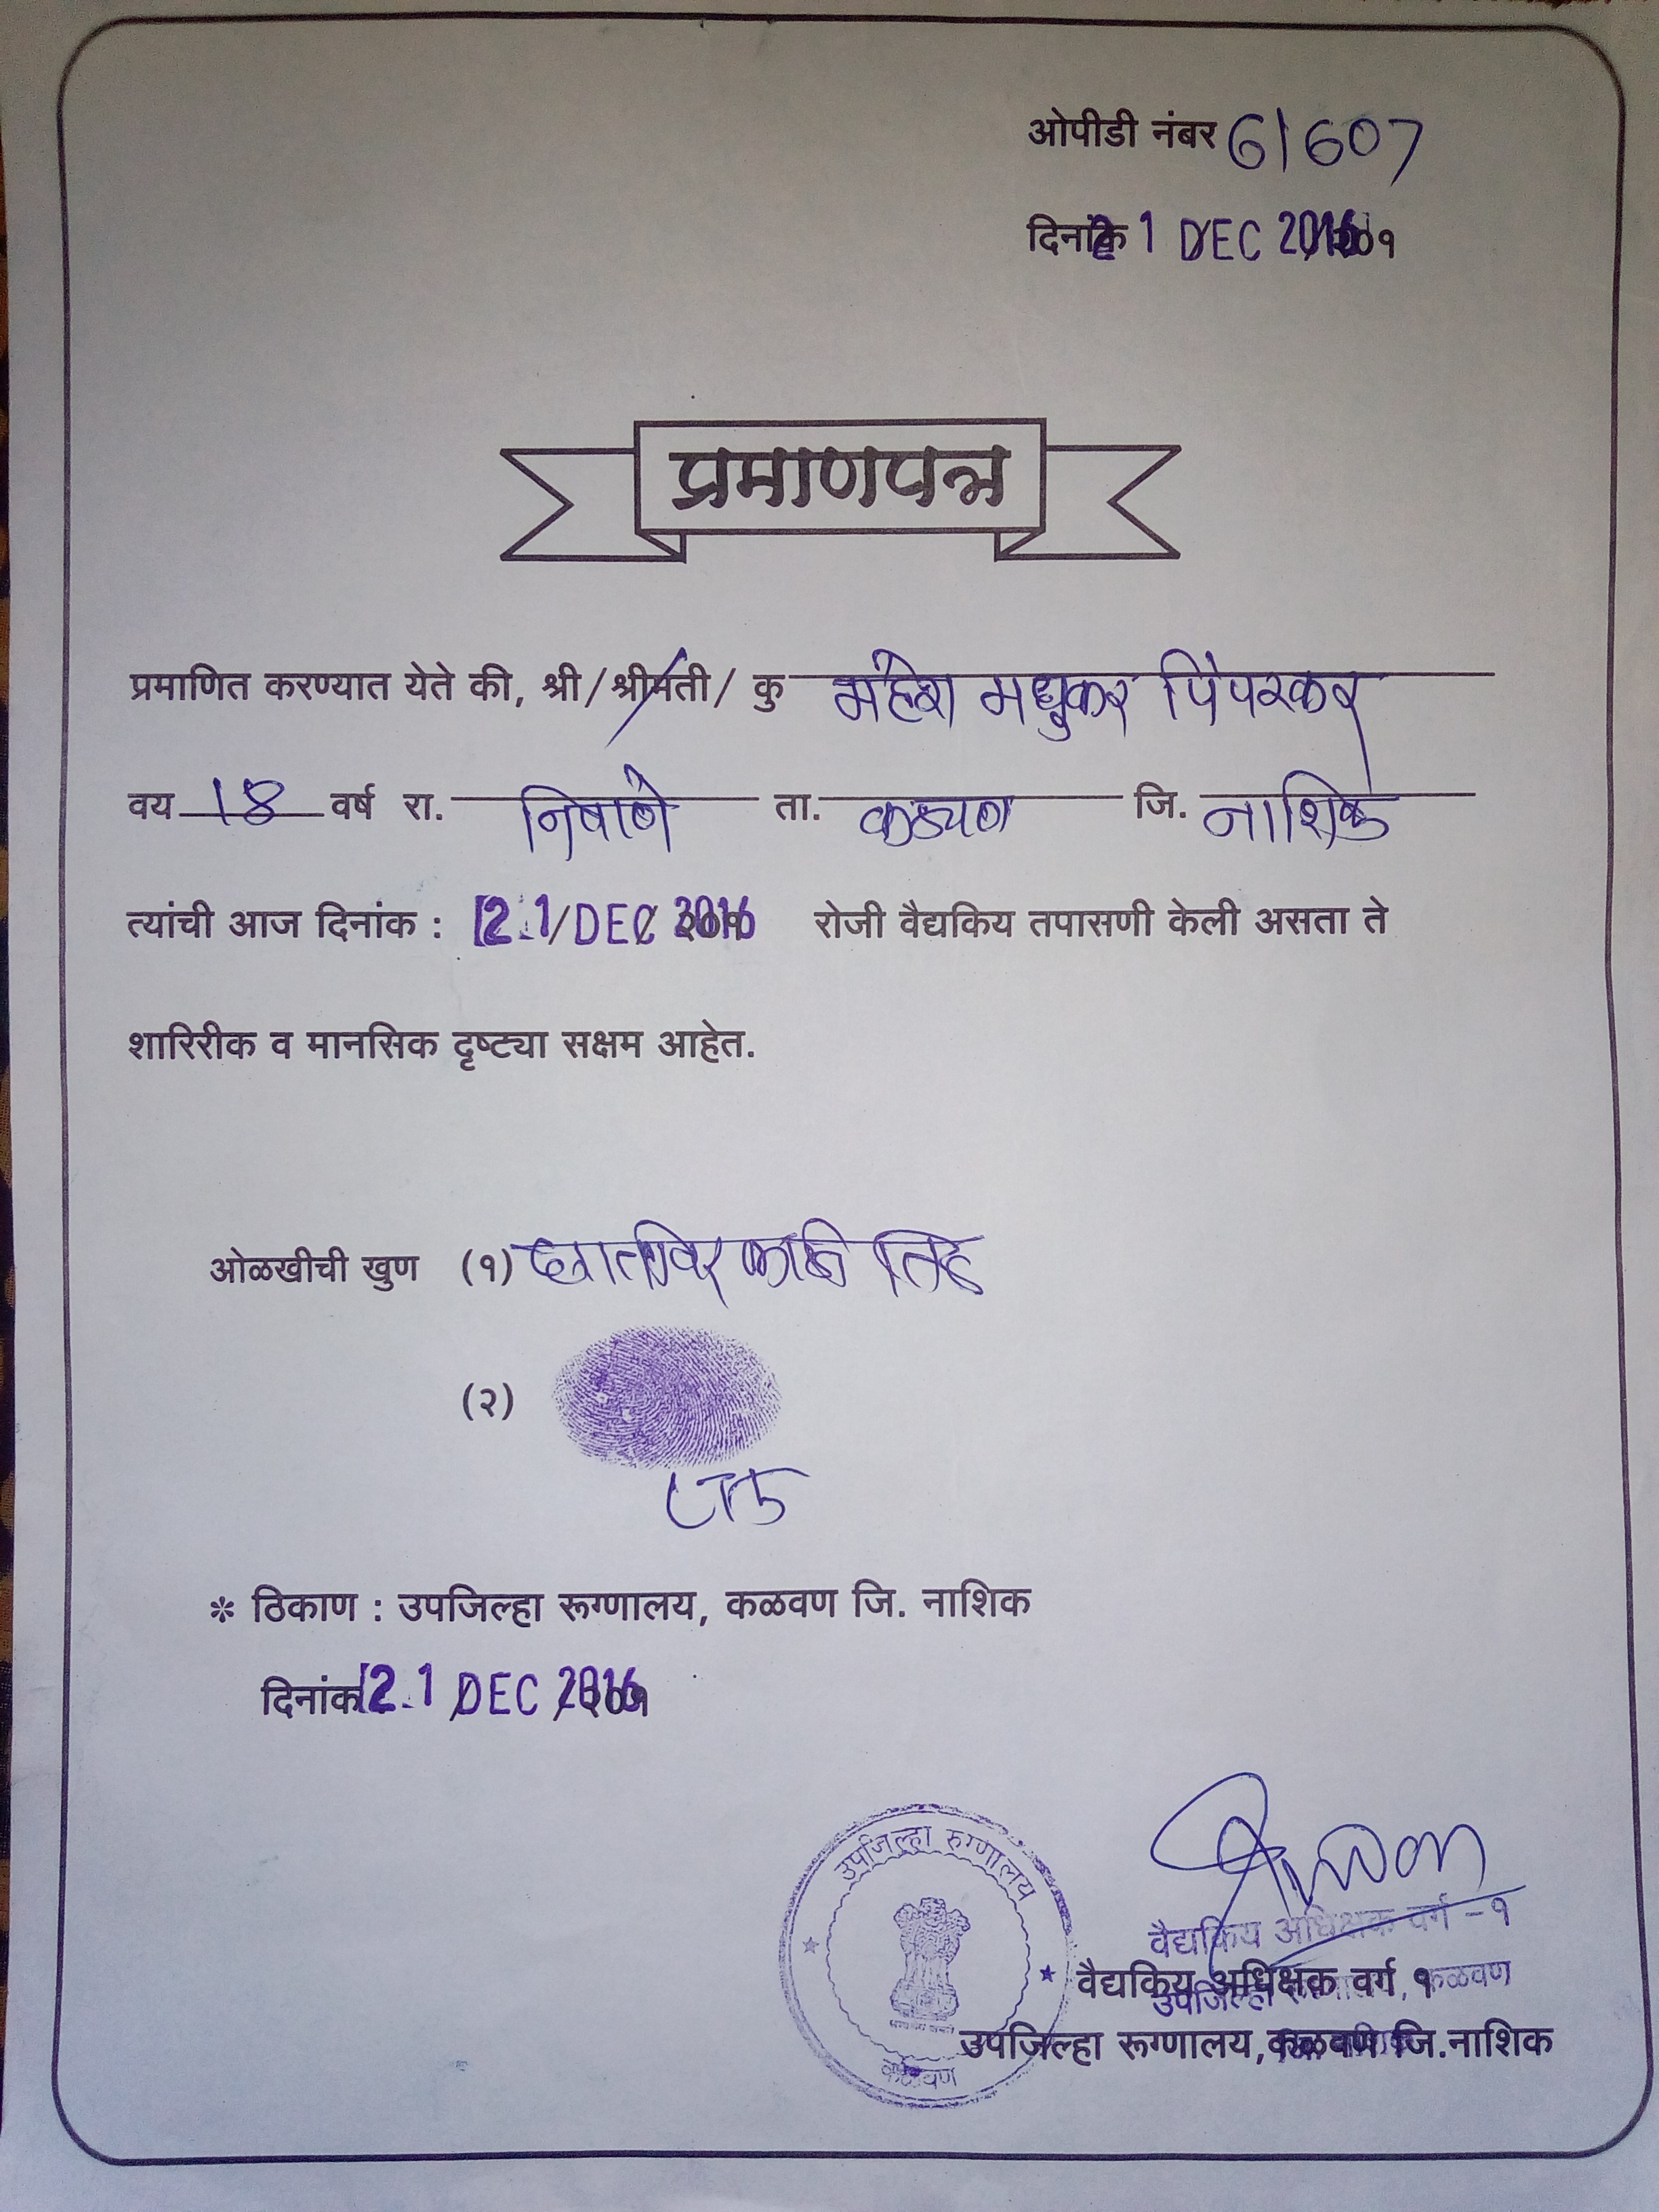 ओपीडी नंबर 61607
दिनांक 21 DEC 2016
प्रमाणपत्र
प्रमाणित करण्यात येते की, श्री/श्रीमती/ कु महेश मधुकर पिंपरकर
वय 18 वर्ष रा. निवाणे ता. कळवण जि. नाशिक
त्यांची आज दिनांक : 21/DEC 2016 रोजी वैद्यकिय तपासणी केली असता ते
शारिरीक व मानसिक दृष्ट्या सक्षम आहेत.
ओळखीची खुण (१) छातीवर काळा तिळ
(२)
* ठिकाण : उपजिल्हा रूग्णालय, कळवण जि. नाशिक
दिनांक 21 DEC 2016
उपजिल्हा रुग्णालय
कळवण
वैद्यकिय अधिक्षक वर्ग -१
वैद्यकिय अधिक्षक वर्ग १
उपजिल्हा कळवण
उपजिल्हा रूग्णालय,कळवण जि.नाशिक